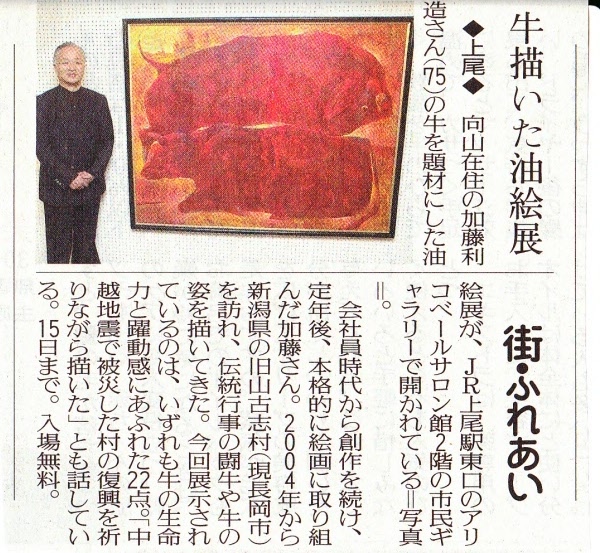 街・ふれあい
牛描いた油絵展
◆上尾◆　向山在住の加藤利
造さん(75)の牛を題材にした油
絵展が、JR上尾駅東口のアリ
コベールサロン館2階の市民ギ
ャラリーで開かれている＝写真
＝。
　会社員時代から創作を続け、
定年後、本格的に絵画に取り組
んだ加藤さん。2004年から
新潟県の旧山古志村(現長岡市)
を訪れ、伝統行事の闘牛や牛の
姿を描いてきた。今回展示され
ているのは、いずれも牛の生命
力と躍動感にあふれた22点。「中
越地震で被災した村の復興を祈
りながら描いた」とも話してい
る。15日まで。入場無料。